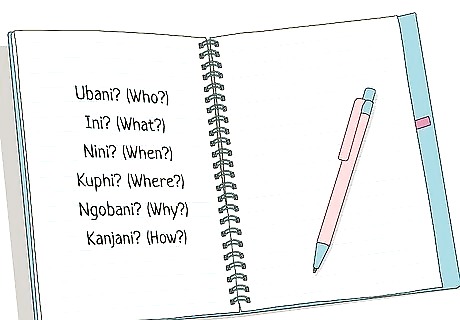 Ubani? (Who?)
Ini? (What?)
Nini? (When?)
Kuphi? (Where?)
Ngobani? (Why?)
Kanjani? (How?)